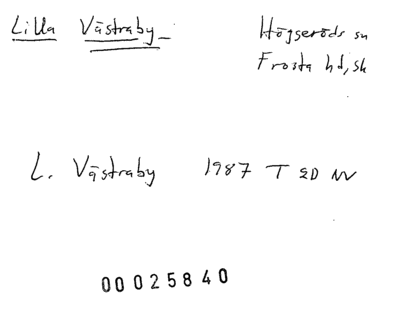 Lilla Västraby
Högseröds sn
Frosta hd, Sk
L. Västraby 1987 T 2D NV
00025840